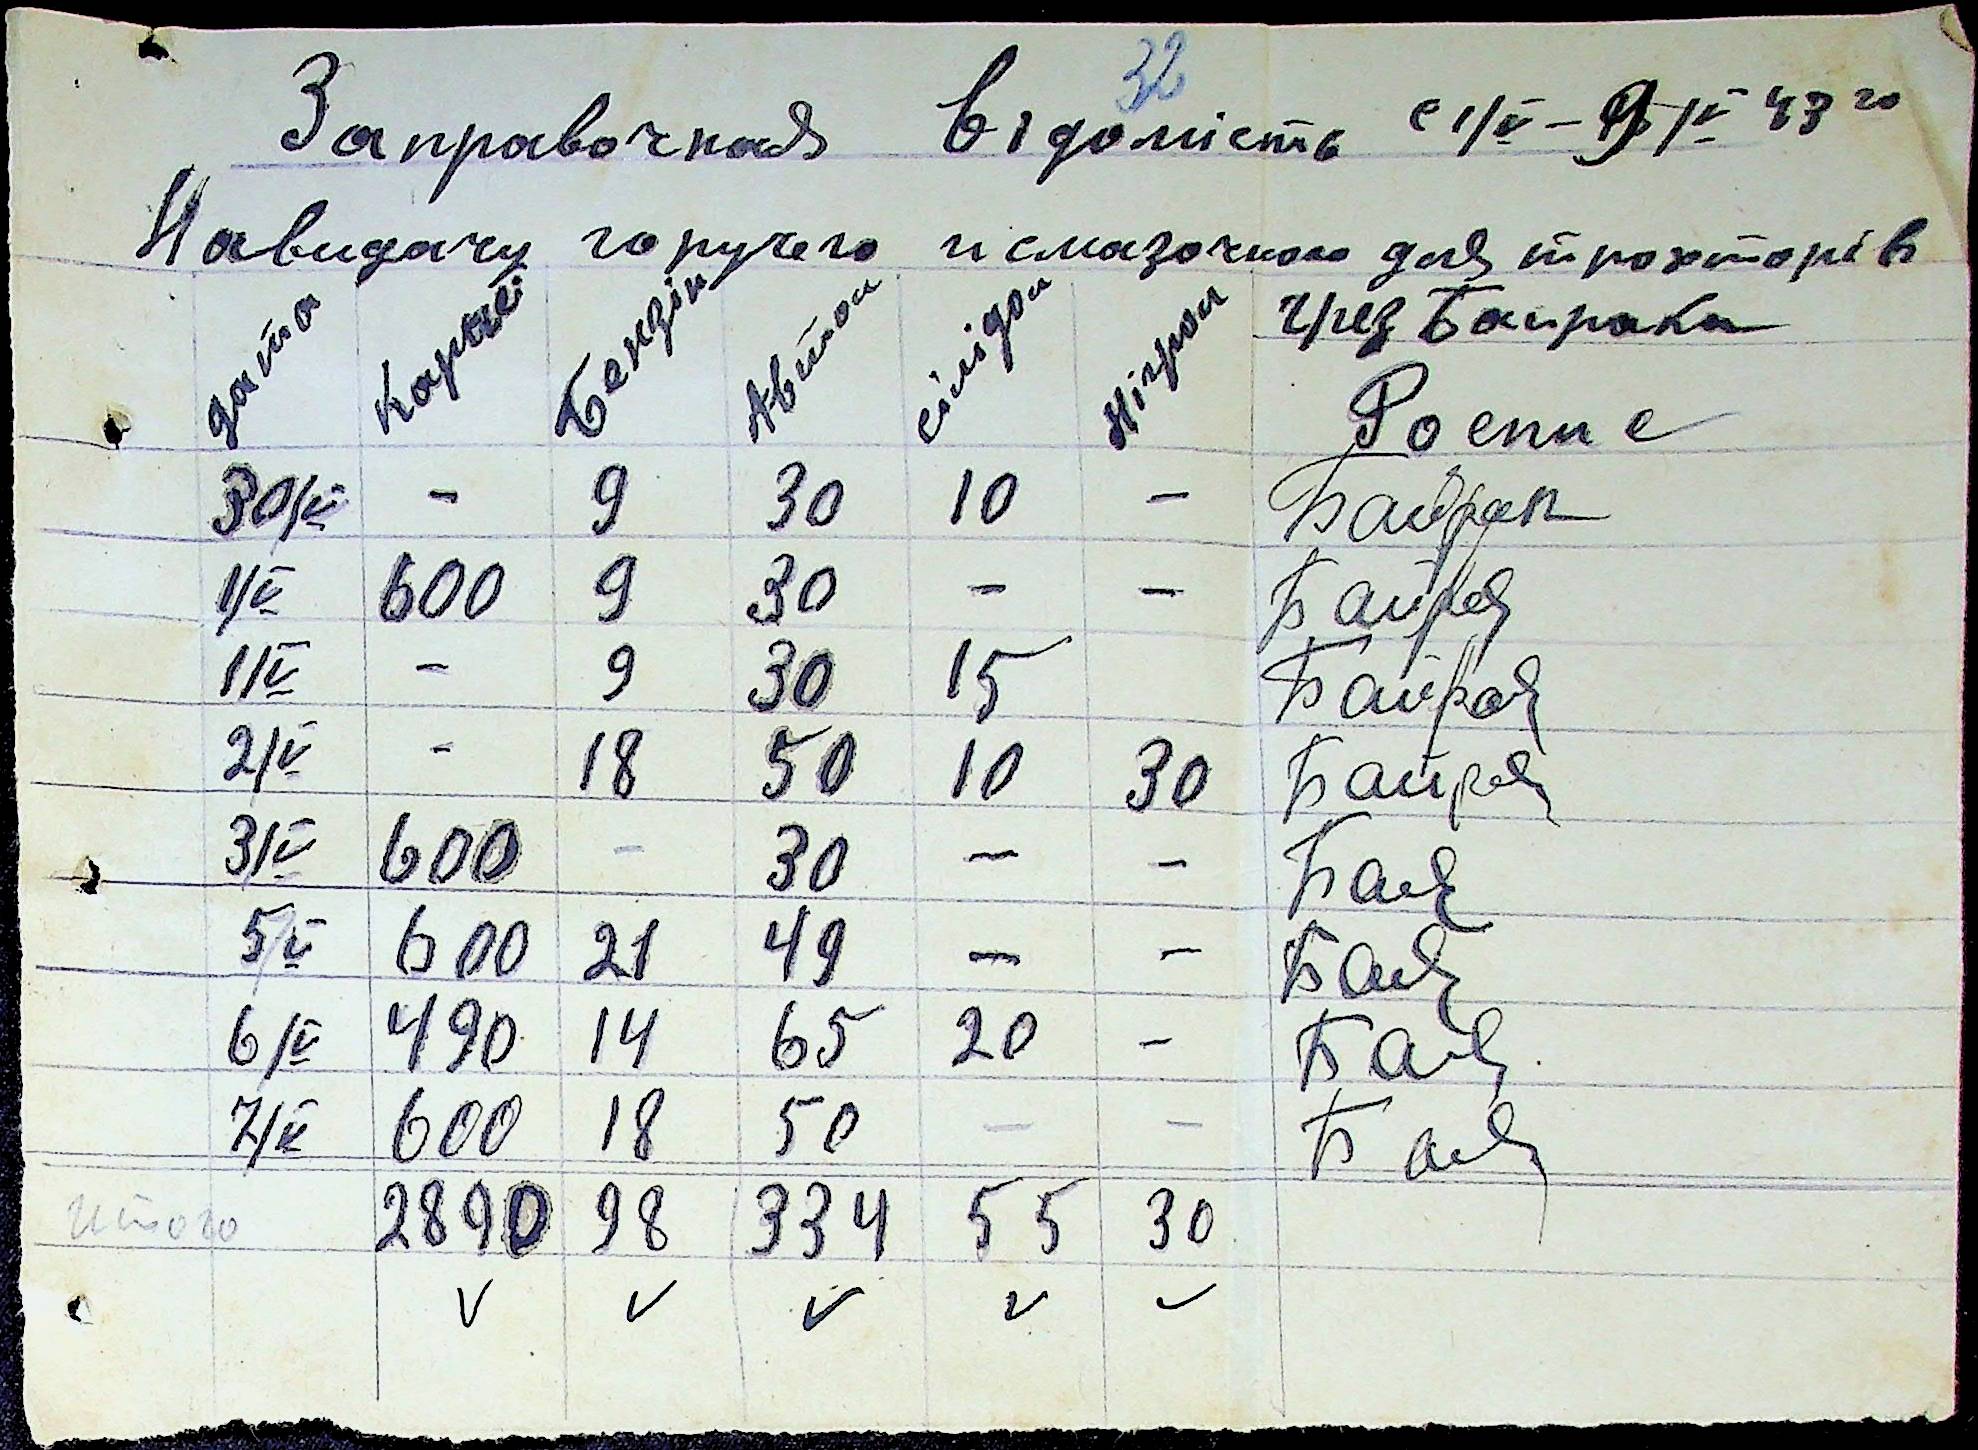 32
Заправочная відомість с 1/V – 9/V 43 го
На видачу горучего и смазочного для тракторів
чрез Байрака
дата Бензін Автол солідол Нігрол Роспис
30/IV – 9 30 10 – Байрак
1/V 600 9 30 – – Байрак
1/V – 9 30 15 Байрак
2/V – 18 50 10 30 Байрак
3/V 600 – 30 – – Бай
5/V 600 21 49 – – Бай
6/V 490 14 65 20 – Бай
7/V 600 18 50 – – Бай
итого 2890 98 334 55 30
✓ ✓ ✓ ✓ ✓